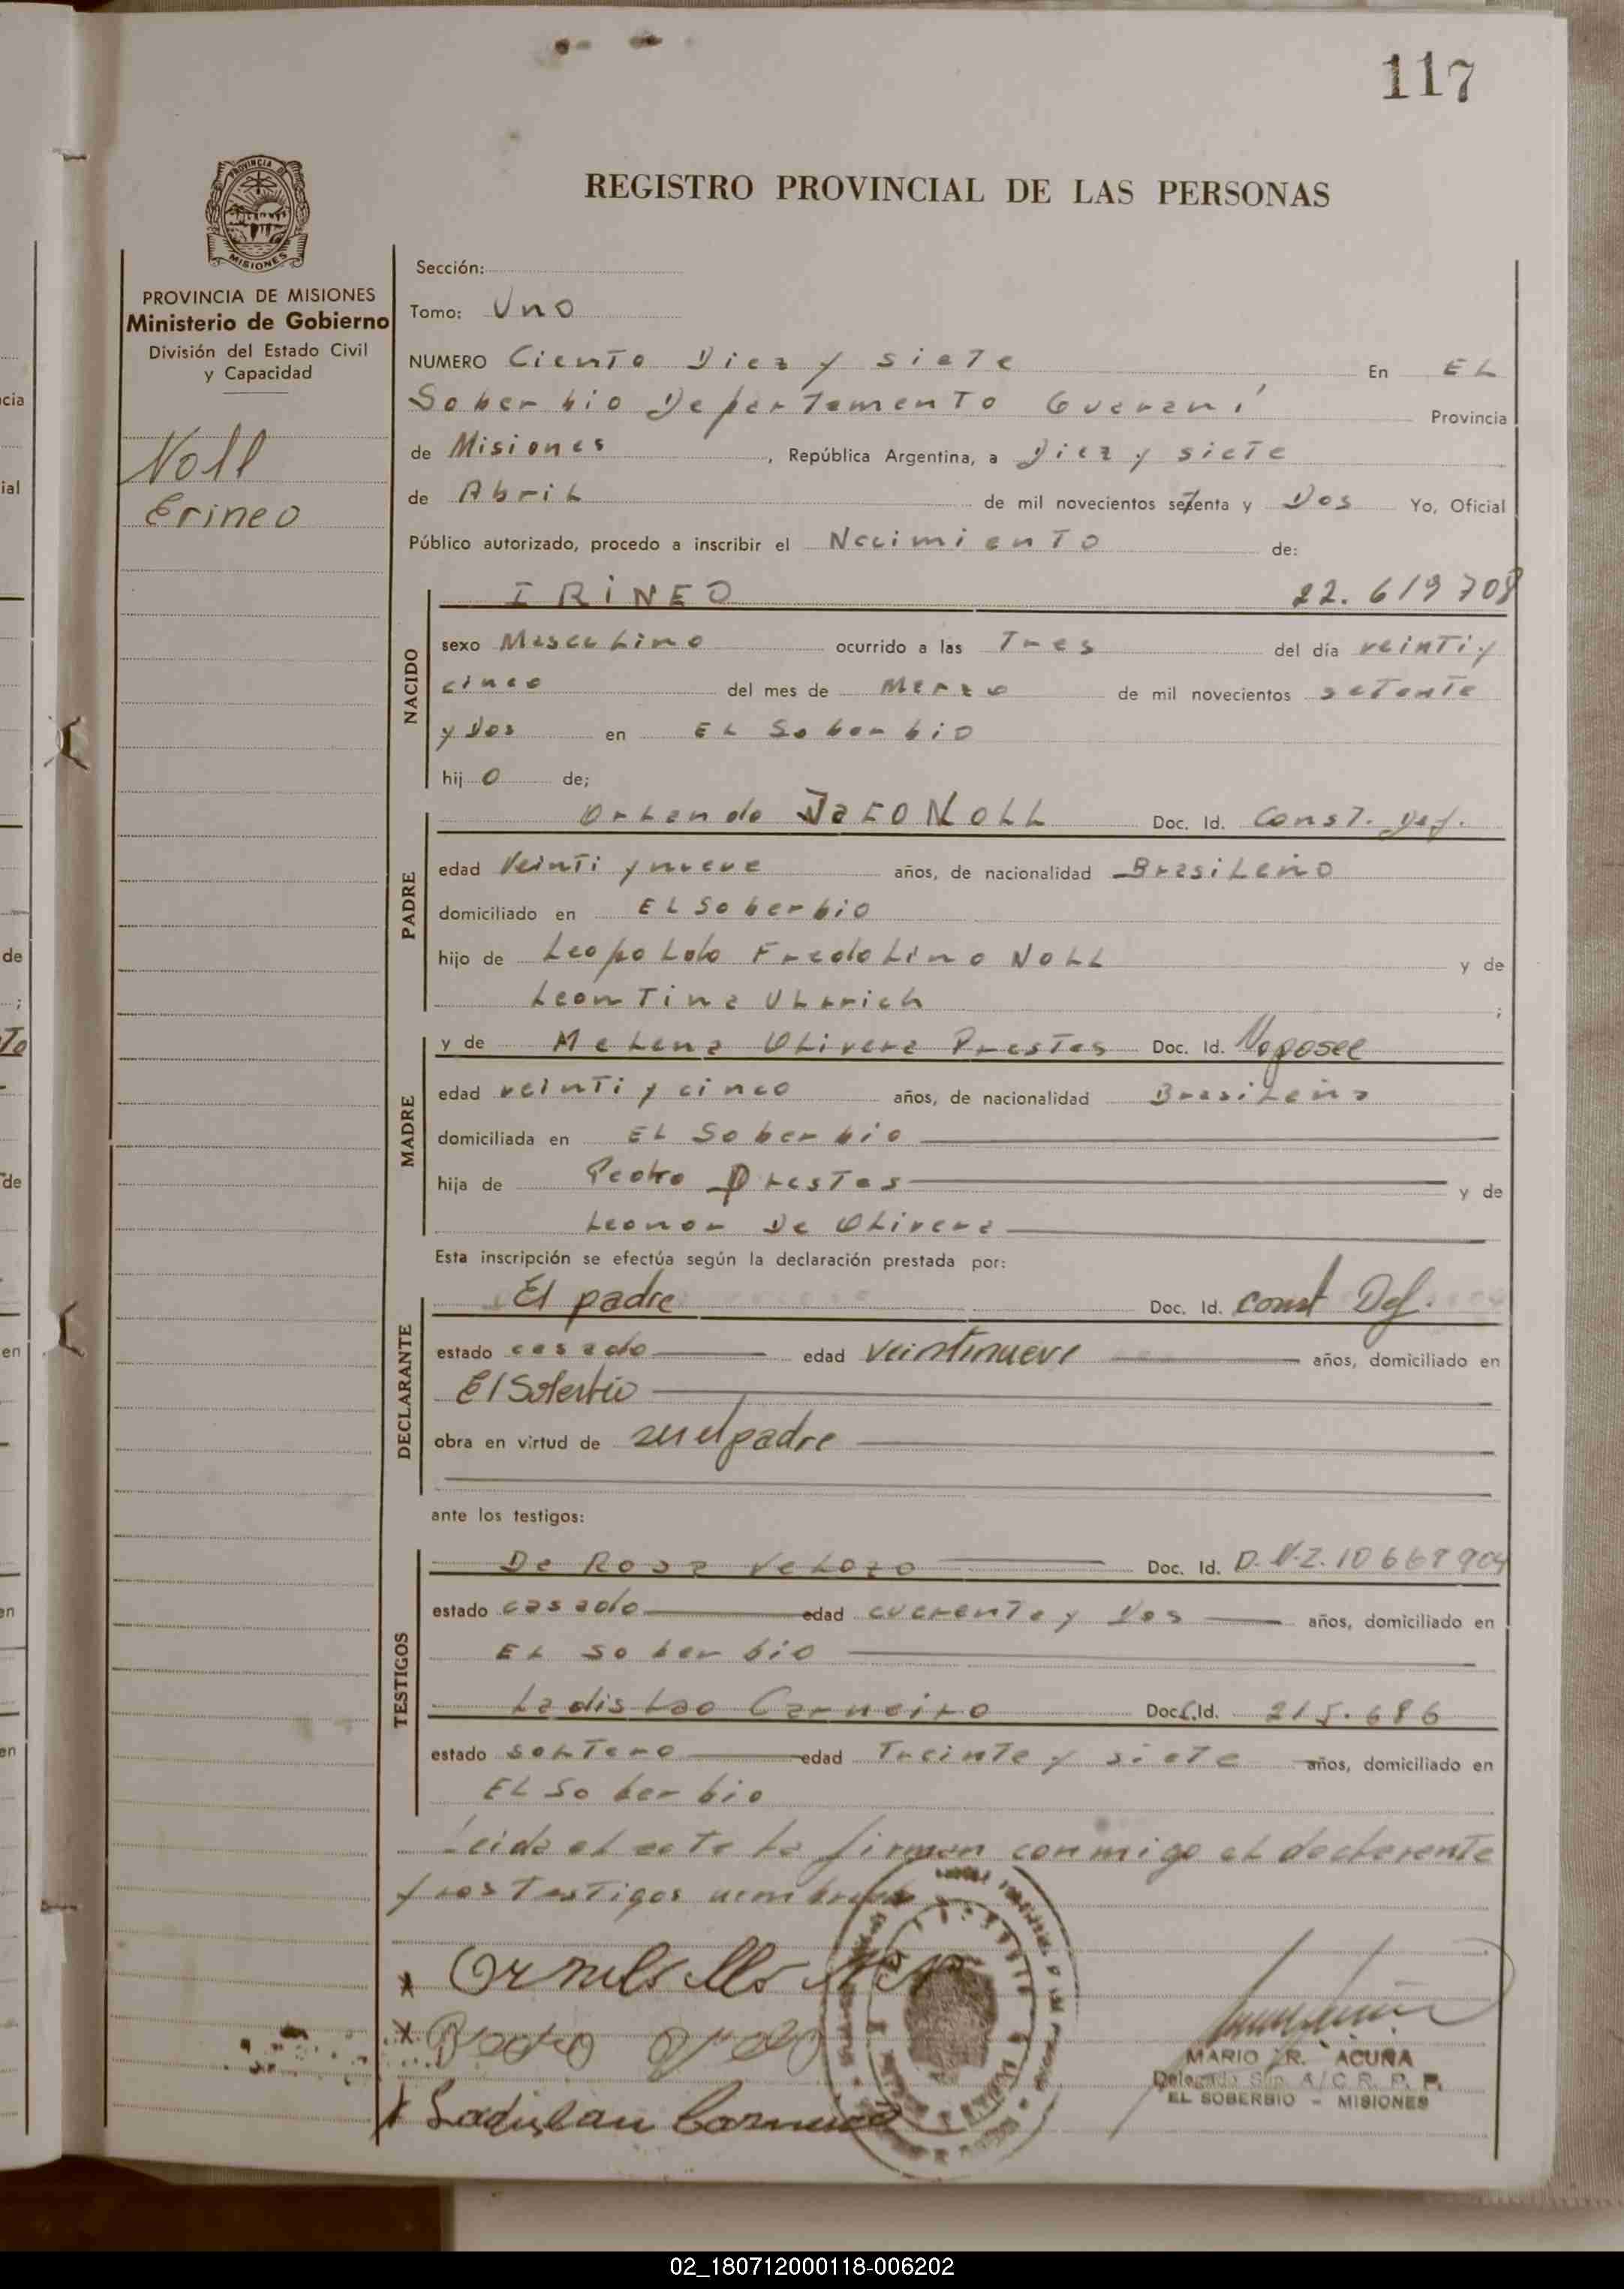 117
PROVINCIA DE
MISIONES
REGISTRO PROVINCIAL DE LAS PERSONAS
PROVINCIA DE MISIONES
Ministerio de Gobierno
División del Estado Civil
y Capacidad
Noll
Erineo
Sección:
Tomo: Uno
NUMERO Ciento Diez y siete En EL
Soberbio Departamento Guaraní Provincia
de Misiones, República Argentina, a Diez y siete
de Abril de mil novecientos setenta y Dos Yo, Oficial
Público autorizado, procedo a inscribir el Nacimiento de:
NACIDO
IRINEO 22.619708
sexo Masculino ocurrido a las Tres del día veinti y
cinco del mes de Marzo de mil novecientos setenta
y Dos en EL Soberbio
hijo de;
PADRE
Orlando NOLL Doc. Id. Const. Def.
edad Veinti y nueve años, de nacionalidad Brasileño
domiciliado en EL Soberbio
hijo de Leopoldo Fredolino NOLL y de
Leontina Ulrrich ;
MADRE
y de Melena Olivera Prestes Doc. Id. No posee
edad veinti y cinco años, de nacionalidad Brasileña
domiciliada en EL Soberbio
hija de Pedro Prestes y de
Leonor De Olivera
Esta inscripción se efectúa según la declaración prestada por:
DECLARANTE
El padre Doc. Id. const Def.
estado casado edad veintinueve años, domiciliado en
El Soberbio
obra en virtud de ser el padre
ante los testigos:
TESTIGOS
De Rosa Velozo Doc. Id. D.N.I. 10669904
estado casado edad cuarenta y Dos años, domiciliado en
EL Soberbio
Ladislao Carneiro Doc. Id. 215.686
estado soltero edad Treinta y siete años, domiciliado en
EL Soberbio
Leida el acta la firman conmigo el declarente
y los Testigos
Ladislau
MARIO R. ACUÑA
Delegado Sup. A/C R. P. P.
EL SOBERBIO - MISIONES
02_180712000118-006202